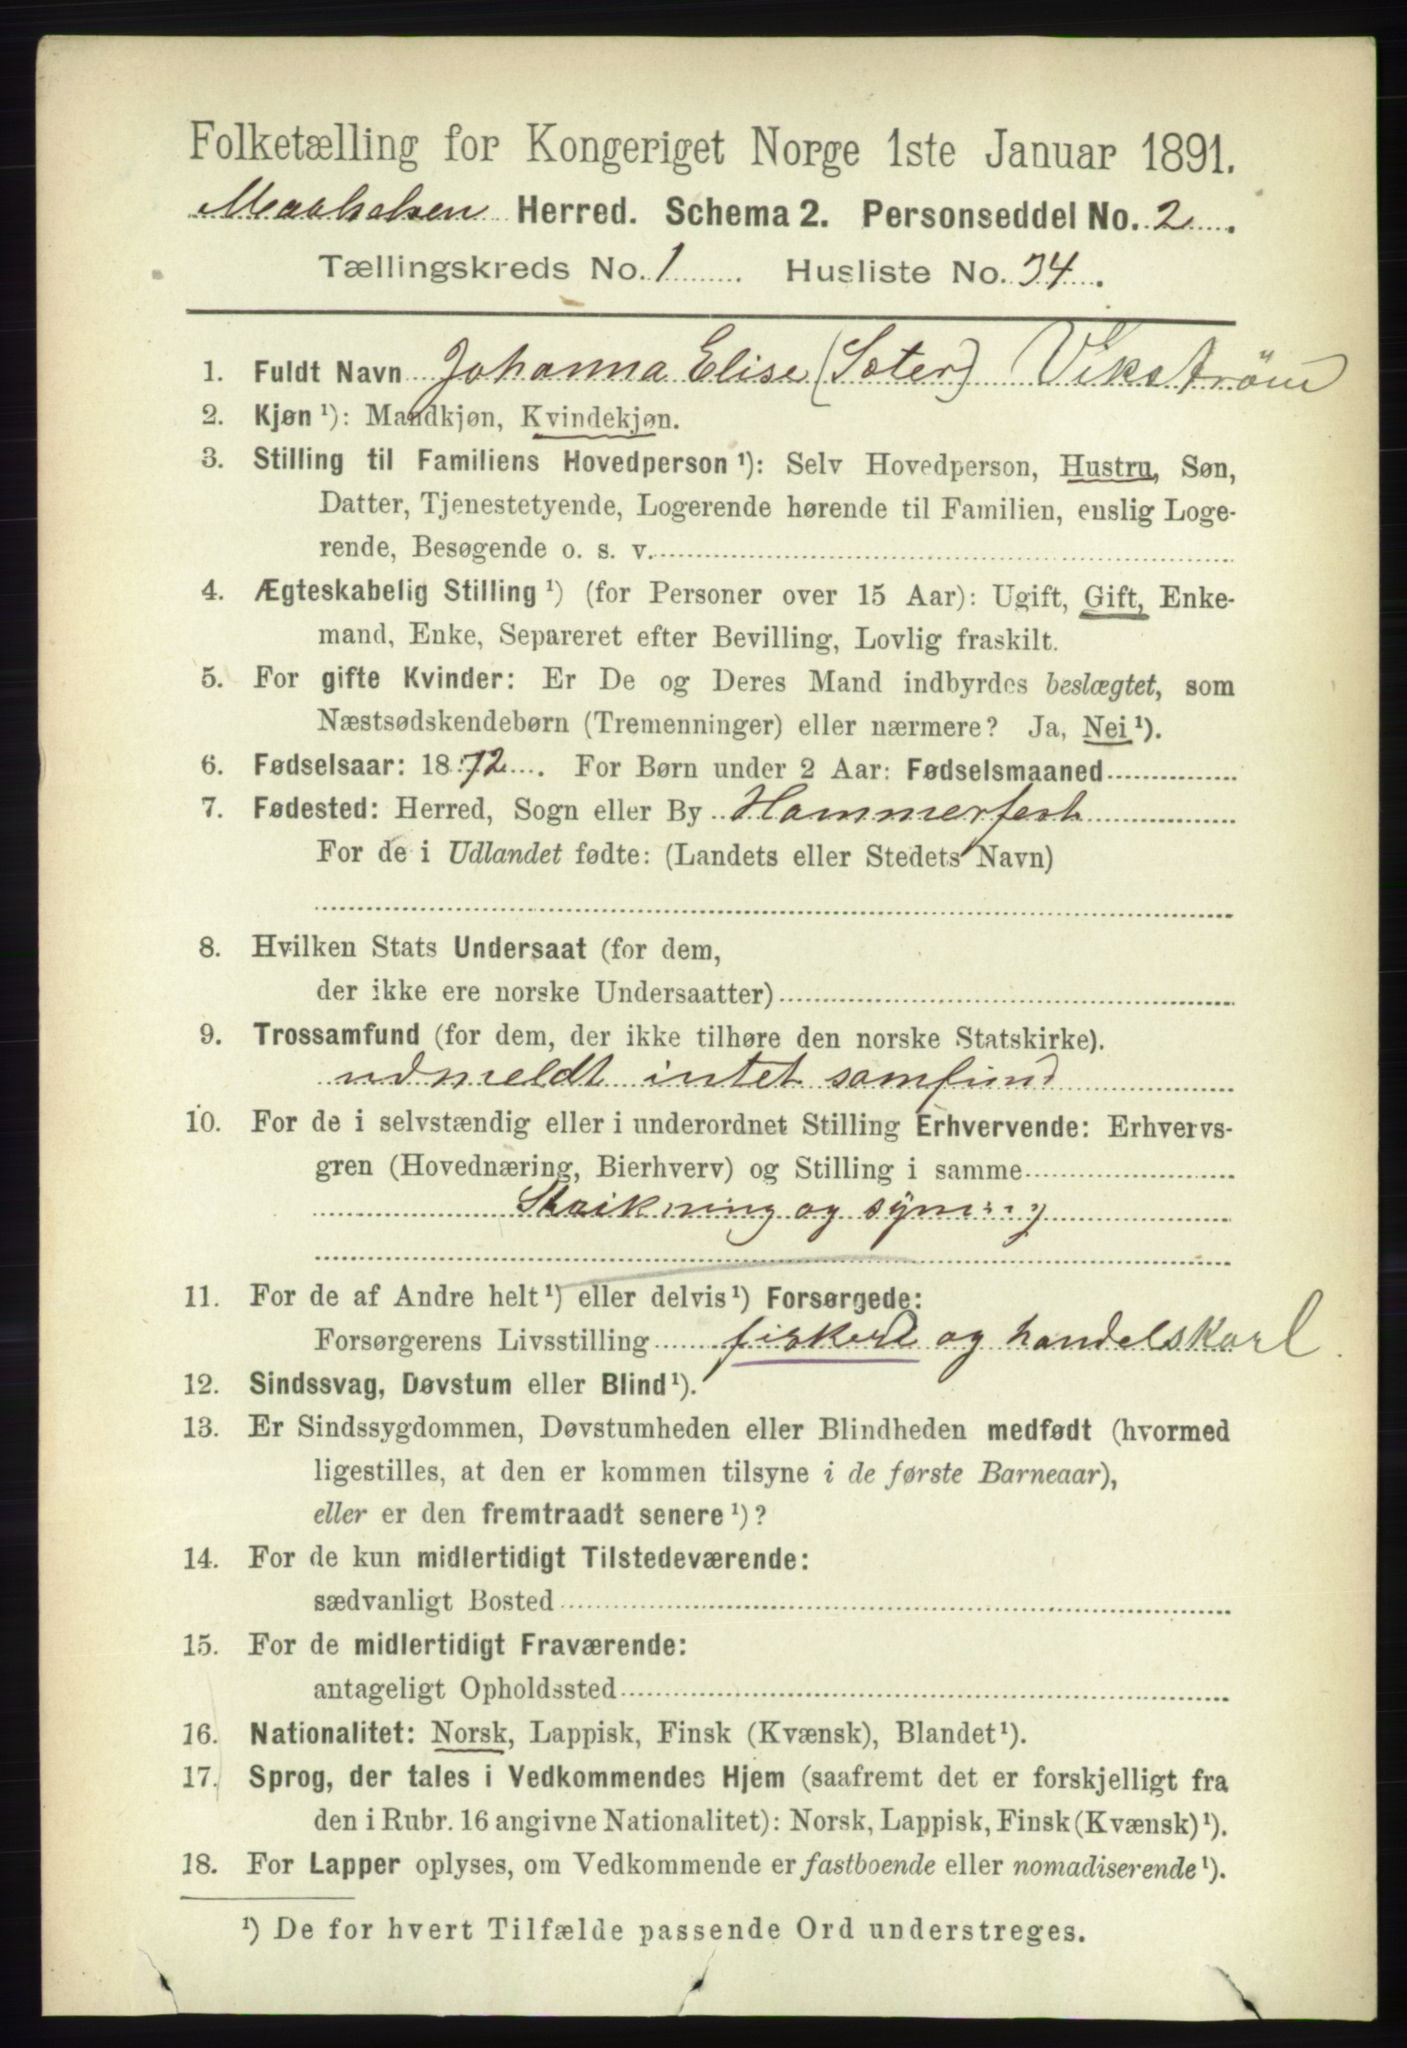 Folketælling for Kongeriget Norge 1ste Januar 1891.
Maalselven Herred. Schema 2. Personseddel No. 2
Tællingskreds No. 1 Husliste No. 34.
1. Fuldt Navn Johanna Elise (Soter) Vikstrøm
2. Kjøn ¹): Mandkjøn, Kvindekjøn.
3. Stilling til Familiens Hovedperson ¹): Selv Hovedperson, Hustru, Søn,
Datter, Tjenestetyende, Logerende hørende til Familien, enslig Loge-
rende, Besøgende o. s. v.
4. Ægteskabelig Stilling ¹) (for Personer over 15 Aar): Ugift, Gift, Enke-
mand, Enke, Separeret efter Bevilling, Lovlig fraskilt.
5. For gifte Kvinder: Er De og Deres Mand indbyrdes beslægtet, som
Næstsødskendebørn (Tremenninger) eller nærmere? Ja, Nei ¹).
6. Fødselsaar: 1872. For Børn under 2 Aar: Fødselsmaaned
7. Fødested: Herred, Sogn eller By Hammerfest
For de i Udlandet fødte: (Landets eller Stedets Navn)
8. Hvilken Stats Undersaat (for dem,
der ikke ere norske Undersaatter)
9. Trossamfund (for dem, der ikke tilhøre den norske Statskirke).
udmeldt intet samfund
10. For de i selvstændig eller i underordnet Stilling Erhvervende: Erhvervs-
gren (Hovednæring, Bierhverv) og Stilling i samme
og syning
11. For de af Andre helt ¹) eller delvis ¹) Forsørgede:
Forsørgerens Livsstilling fisker og handelskarl
12. Sindssvag, Døvstum eller Blind ¹).
13. Er Sindssygdommen, Døvstumheden eller Blindheden medfødt (hvormed
ligestilles, at den er kommen tilsyne i de første Barneaar),
eller er den fremtraadt senere ¹)?
14. For de kun midlertidigt Tilstedeværende:
sædvanligt Bosted
15. For de midlertidigt Fraværende:
antageligt Opholdssted
16. Nationalitet: Norsk, Lappisk, Finsk (Kvænsk), Blandet ¹).
17. Sprog, der tales i Vedkommendes Hjem (saafremt det er forskjelligt fra
den i Rubr. 16 angivne Nationalitet): Norsk, Lappisk, Finsk (Kvænsk) ¹).
18. For Lapper oplyses, om Vedkommende er fastboende eller nomadiserende ¹).
¹) De for hvert Tilfælde passende Ord understreges.